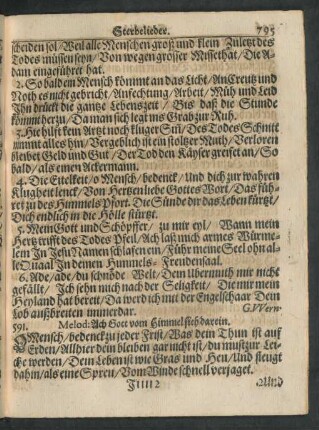 Sterbelieder. 795
scheiden sol/Weil alle Menschen groß und klein Zuletzt des
Todes müssen seyn/Von wegen grosser Missethat/Die A-
dam eingeführet hat.
2. So bald ein Mensch kömmt an das Licht/An Creutz und
Noth es nicht gebricht/Anfechtung/Arbeit/Müh und Leid
Ihn drückt die gantze Lebenszeit/Bis daß die Stunde
kömmt herzu/Da man sich legt ins Grab zur Ruh.
3. Hie hilft kein Artzt noch kluger Siñ/Des Todes Schnitt
nimmt alles hin/Vergeblich ist ein stoltzer Muth/Verloren
bleibet Geld und Gut/Der Tod den Käyser greifet an/So
bald/als einen Ackermann.
4. Die Eitelkeit/o Mensch/bedenck/Und dich zur wahren
Klugheit lenck/Von Hertzen liebe Gottes Wort/Das füh-
ret zu des Himmels Pfort. Die Sünde dir das Leben kürtzt/
Dich endlich in die Hölle stürtzt.
5. Mein Gott und Schöpffer/zu mir eyl/Wann mein
Hertz trifft des Todes Pfeil/Ach laß mich armes Würme-
lein In Jesu Namen schlafen ein/Führ meine Seel ohn al-
le Quaal In deinen Himmels-Freudensaal.
6. Ade/ade/du schnöde Welt/Dein Ubermuth mir nicht
gefällt/Ich sehn mich nach der Seligkeit/Die mir mein
Heyland hat bereit/Da werd ich mit der Engelschaar Dein
Lob außbreiten immerdar. G. VVern.
591. Melod: Ach Gott vom Himmel sieh darein.
O Mensch/bedenck zu jeder Frist/Was dein Thun ist auf
Erden/Allhier dein bleiben gar nicht ist/du must zur Lei-
che werden/Dein Leben ist wie Gras und Heu/Und fleugt
dahin/als eine Spreu/Vom Winde schnell verjaget.
Jiiii 2 Und